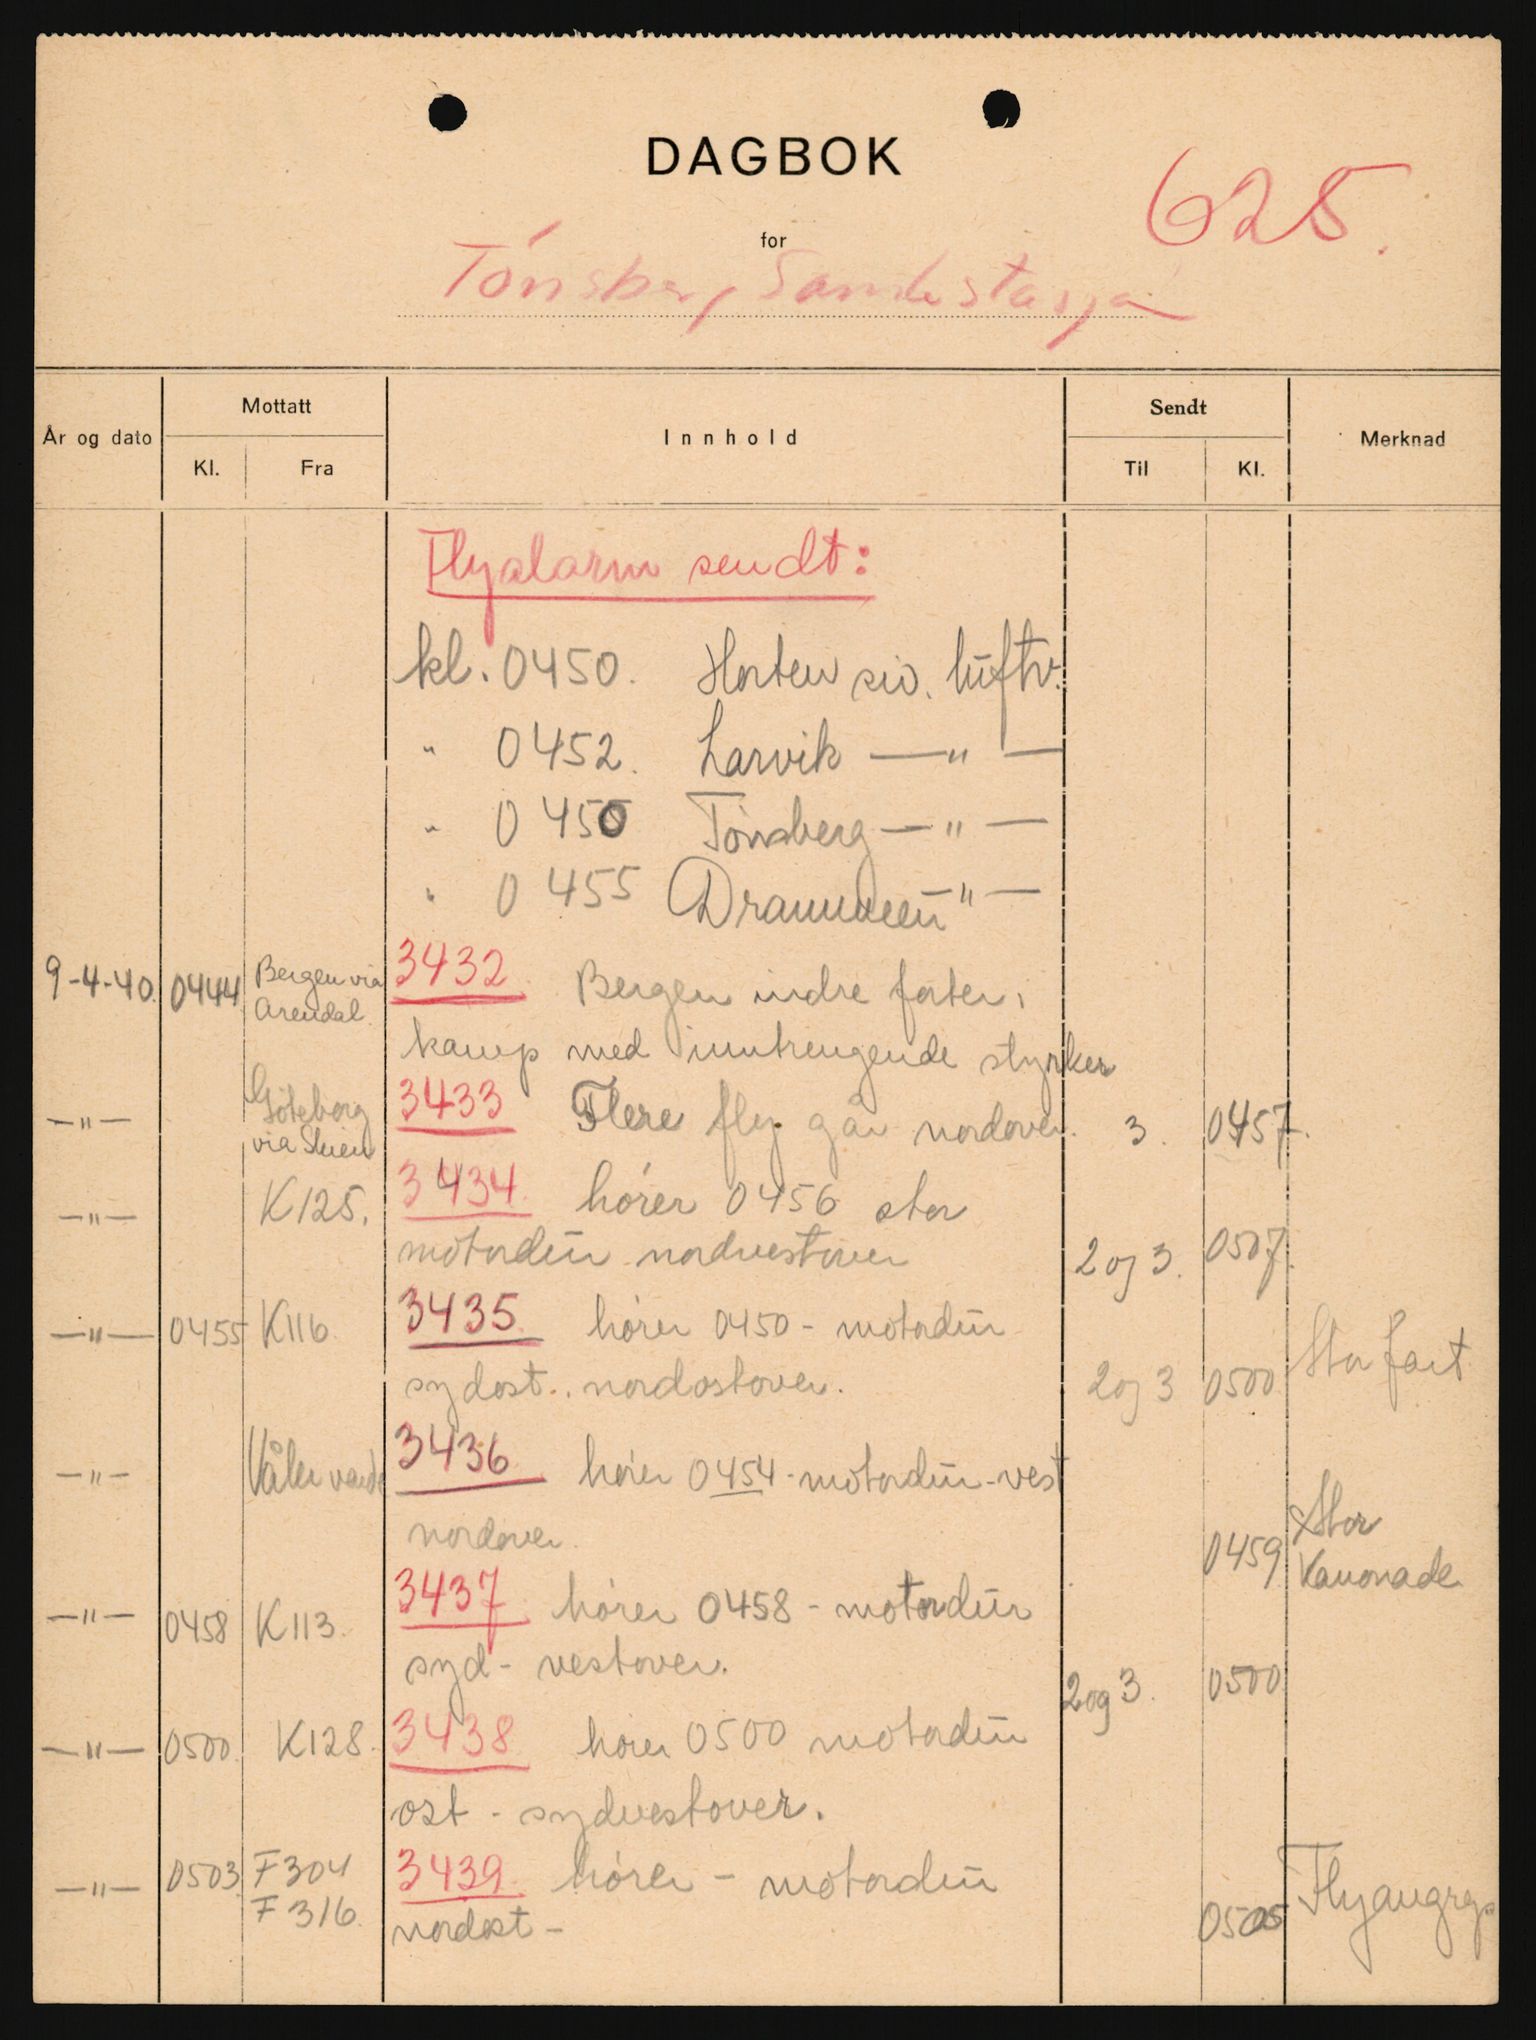 DAGBOK
625.
for
Tónsberg Samlestasjon
År og dato Mottatt Innhold Sendt Merknad
Kl. Fra Til Kl.
Flyalarm sendt:
kl. 0450. Horten siv. luftv.
" 0452. Larvik — " —
" 0450 Tónsberg — " —
" 0455 Drammen " —
9-4-40. 0444 Bergen via 3432 Bergen indre forter i
Arendal
kamp med inntrengende styrker
— " — Göteborg 3433 Flere fly går nordover. 3. 0457.
via Skien
— " — K125. 3434. hórer 0456 stor
motordur nordvestover 2 og 3. 0507.
— " — 0455 K116 3435. hórer 0450 - motordur
sydost.. nordostover. 2 og 3 0500 Stor fart
— " — Våler varde 3436 hórer 0454 - motordur - vest
nordover. 0459 Stor
Kanonade
— " — 0458 K113. 3437 hórer 0458 - motordur
syd - vestover. 2 og 3. 0500
— " — 0500. K128. 3438 hórer 0500 motordur
ost - sydvestover.
— " — 0503 F304 3439. hórer - motordur
F316. nordost - 0505 Flyangrep